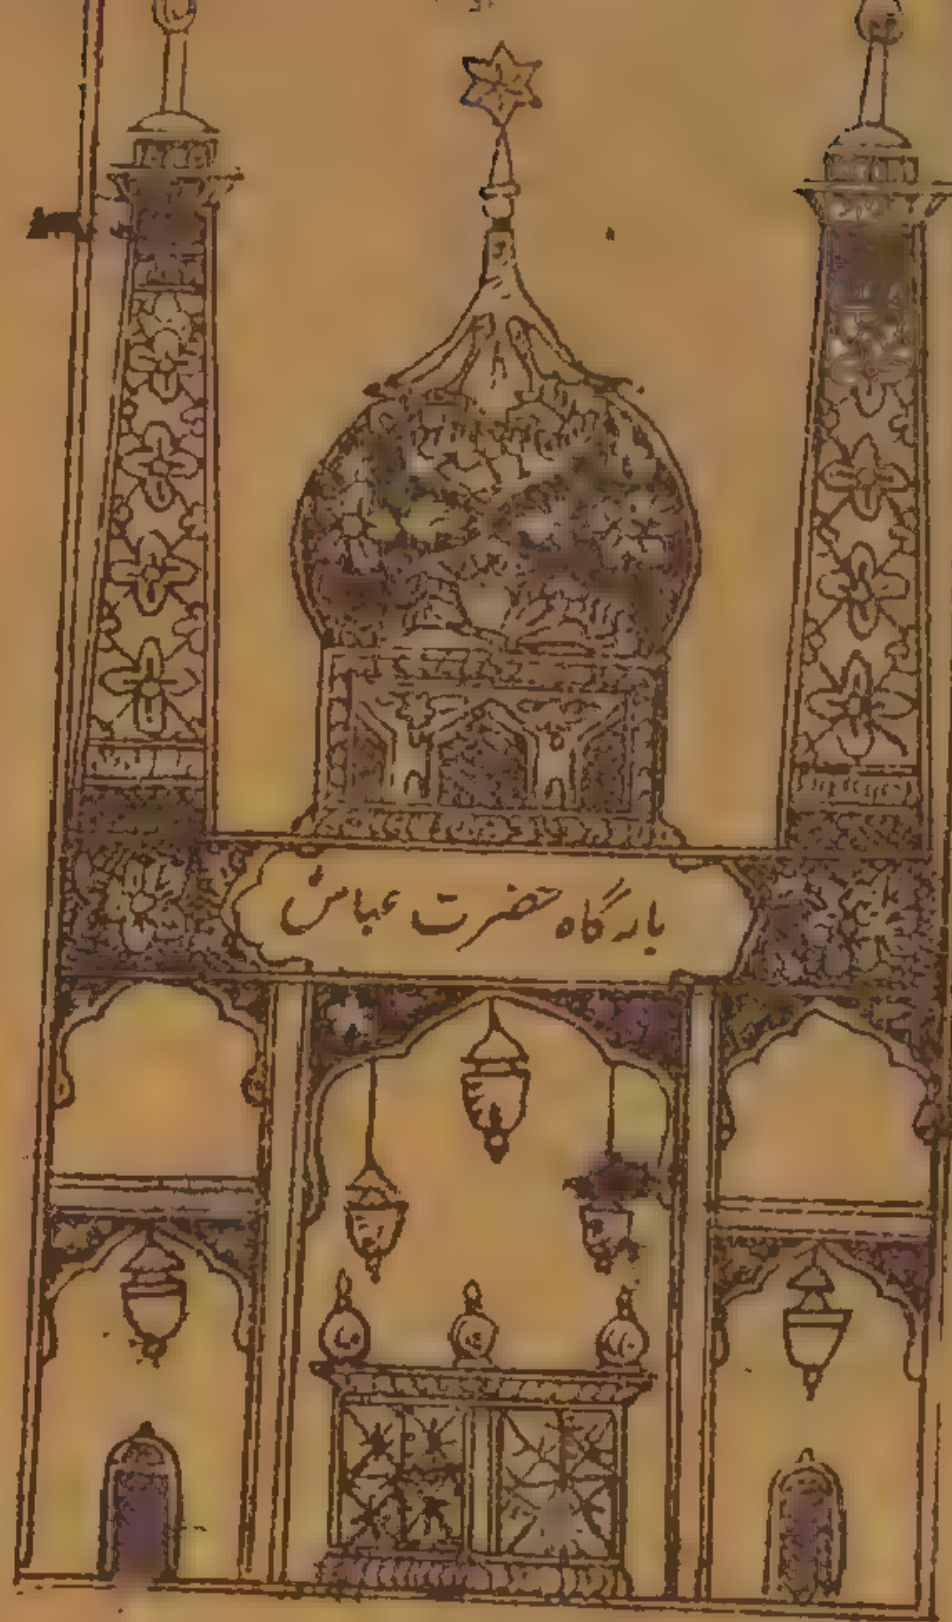 بارگاہ حضرت عباسؑ